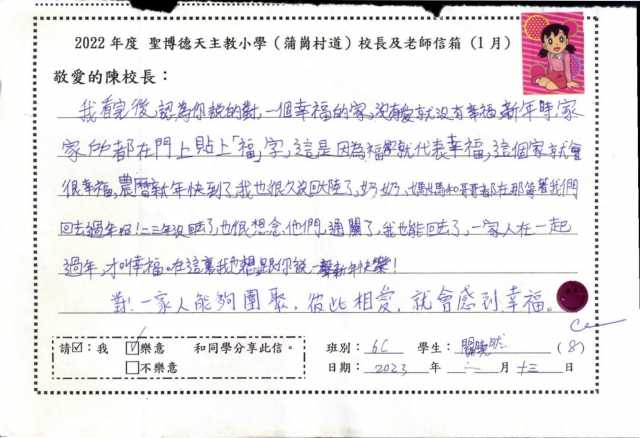 2022年度 聖博德天主教小學（蒲崗村道）校長及老師信箱（1月）
敬愛的陳校長：
我看完後，認為你說的對，一個幸福的家，沒有愛就沒有幸福，新年時，家
家戶都在門上貼上「福」字，這是因為福就代表幸福，這個家就會
很幸福，農曆新年快到了，我也很久沒回大陸了，奶奶、媽媽和哥哥都在那等著我們
回去過年呢！二三年沒回去了，也很想念他們，通關了，我也能回去了，一家人在一起
過年，才叫幸福。在這裏我也想跟你說一聲新年快樂！
對！一家人能夠團聚，彼此相愛，就會感到幸福。
請☑：我 ☑樂意 和同學分享此信。 班別：6C 學生： (8)
□不樂意 日期：2023 年 一 月 十三 日